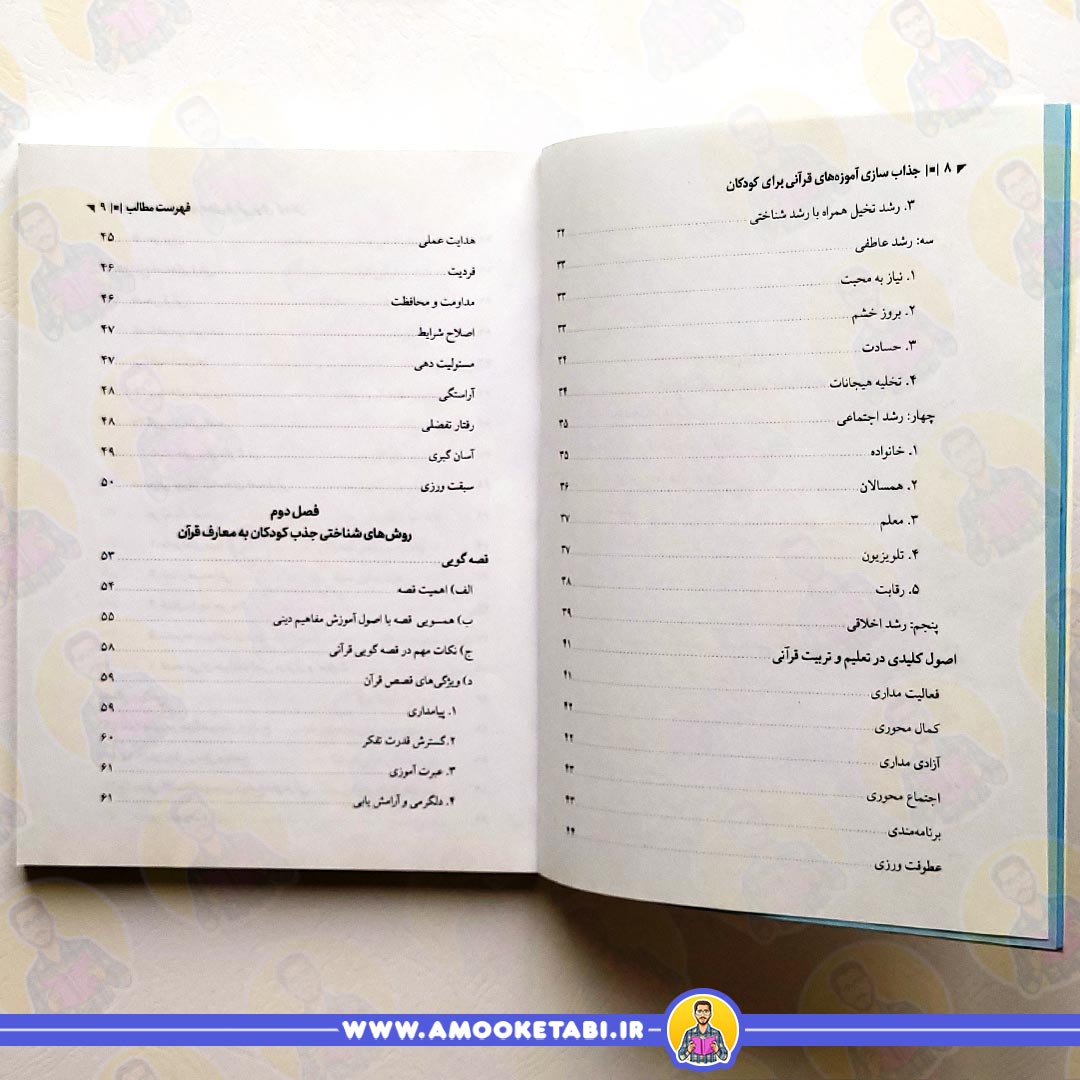 ۸ |■| جذاب سازی آموزه‌های قرآنی برای کودکان
۳. رشد تخیل همراه با رشد شناختی ۳۲
سه: رشد عاطفی ۳۳
۱. نیاز به محبت ۳۳
۲. بروز خشم ۳۳
۳. حسادت ۳۴
۴. تخلیه هیجانات ۳۴
چهار: رشد اجتماعی ۳۵
۱. خانواده ۳۵
۲. همسالان ۳۶
۳. معلم ۳۷
۴. تلویزیون ۳۷
۵. رقابت ۳۸
پنجم: رشد اخلاقی ۳۹
اصول کلیدی در تعلیم و تربیت قرآنی ۴۱
فعالیت مداری ۴۱
کمال محوری ۴۲
آزادی مداری ۴۲
اجتماع محوری ۴۳
برنامه‌مندی ۴۳
عطوفت ورزی ۴۴
فهرست مطالب |■| ۹
هدایت عملی ۴۵
فردیت ۴۶
مداومت و محافظت ۴۶
اصلاح شرایط ۴۷
مسئولیت دهی ۴۷
آراستگی ۴۸
رفتار تفضلی ۴۸
آسان گیری ۴۹
سبقت ورزی ۵۰
فصل دوم
روش‌های شناختی جذب کودکان به معارف قرآن
قصه گویی ۵۳
الف) اهمیت قصه ۵۴
ب) همسویی قصه با اصول آموزش مفاهیم دینی ۵۵
ج) نکات مهم در قصه گویی قرآنی ۵۸
د) ویژگی‌های قصص قرآن ۵۹
۱. پیامداری ۵۹
۲.گسترش قدرت تفکر ۶۰
۳. عبرت آموزی ۶۱
۴. دلگرمی و آرامش یابی ۶۱
WWW.AMOOKETABI.IR